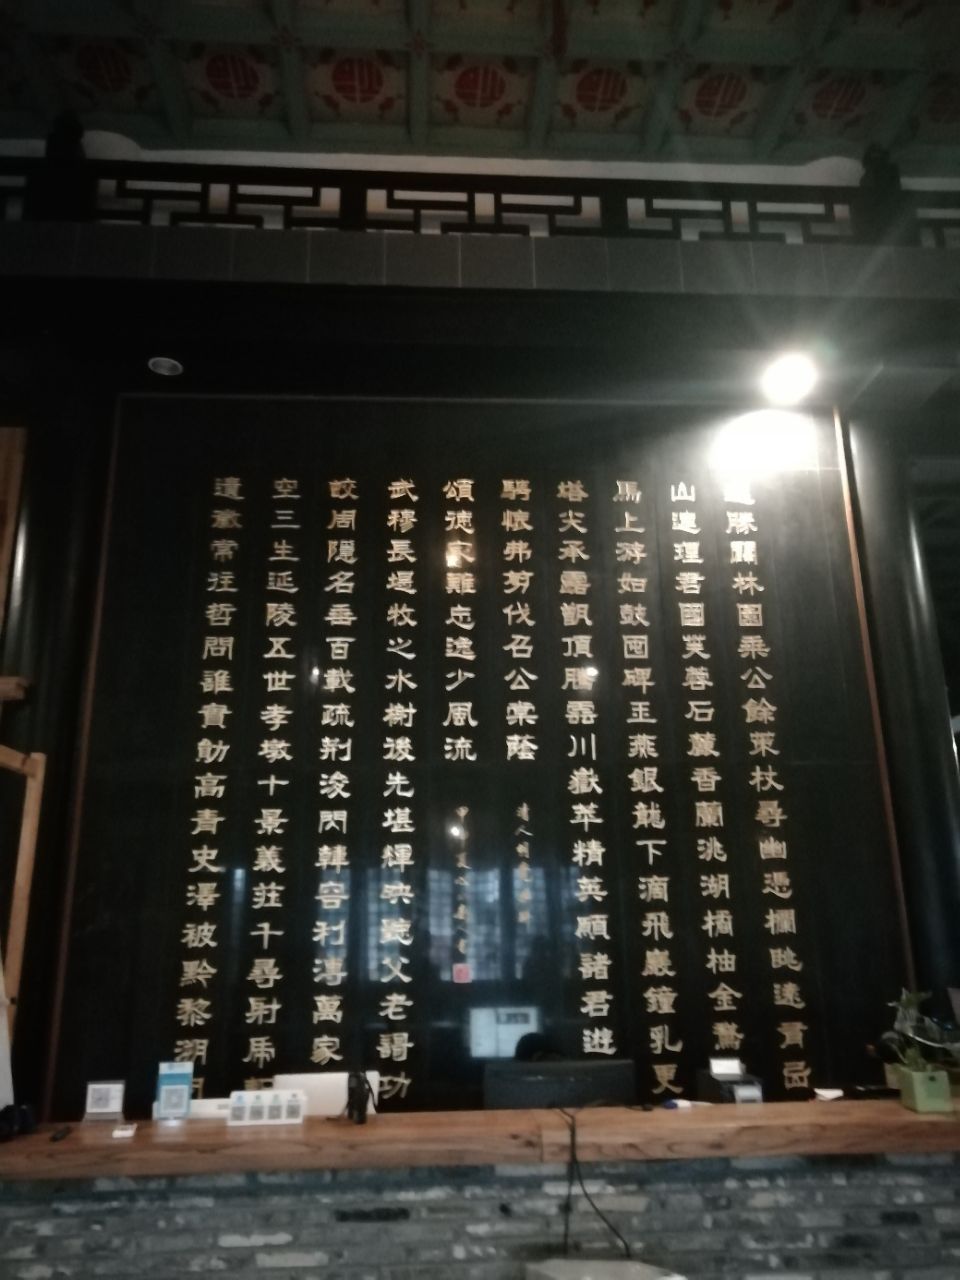 勝闢林園乘公餘策杖尋幽憑欄眺遠看函
山連理君國芙蓉石蔍香蘭洮湖橘柚金
馬上游如鼓囤碑玉燕銀龍下滴飛巖鐘乳更
塔尖承露觀頂騰雲川嶽萃精英願諸君遊
騁懷弗剪伐召公棠蔭
清人
遺徽常往哲問誰實勛高青史澤被黔黎湖
空三生延陵五世孝墩十景義莊千尋射虎
較周隱名垂百載疏荊浚閃韓容利溥萬家
武穆長堤牧之水榭後先堪輝映聽父老謌功
頌德家難忘逸少風流